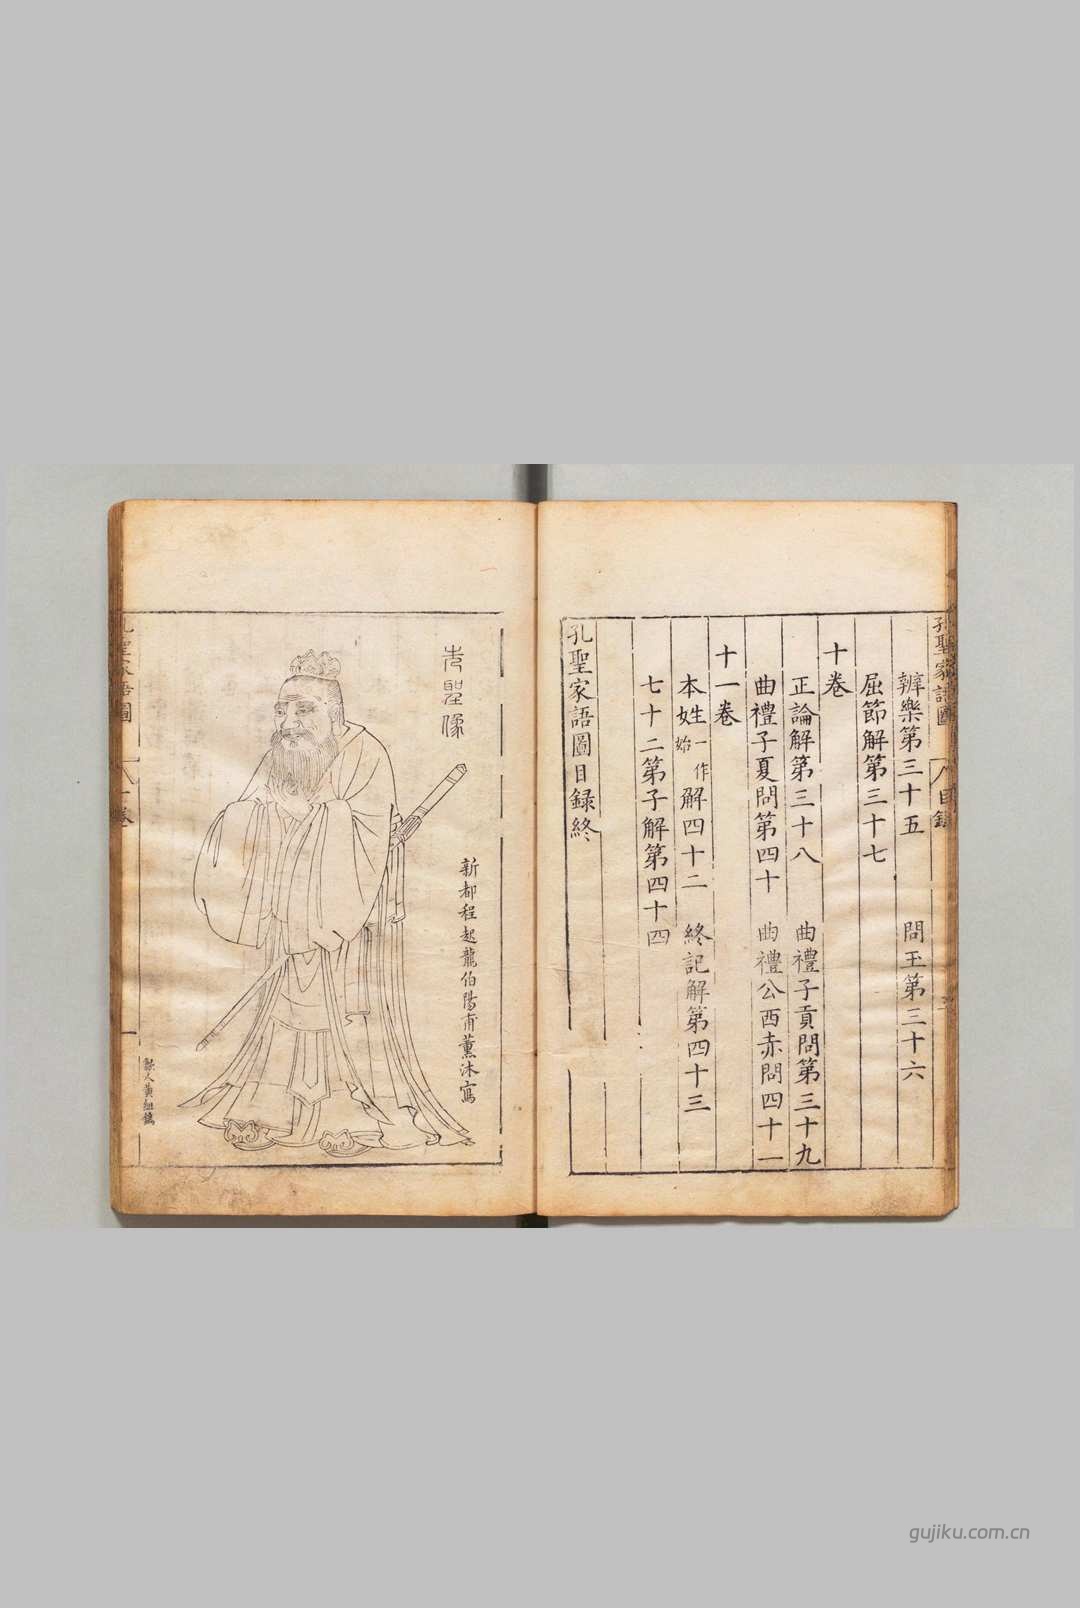 孔聖家語圖
八目錄
辨樂第三十五　問玉第三十六
屈節解第三十七
十卷
正論解第三十八　曲禮子貢問第三十九
曲禮子夏問第四十　曲禮公西赤問四十一
十一卷
本姓一作始解四十二　終記解第四十三
七十二第子解第四十四
孔聖家語圖目録終
先聖像
新都程起龍伯陽甫薰沐寫
黃組鐫
孔聖家語圖
一卷
一
gujiku.com.cn